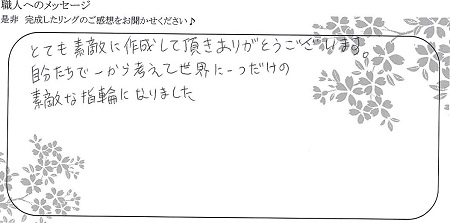 職人へのメッセージ
是非 完成したリングのご感想をお聞かせください♪
とても素敵に作成して頂きありがとうございます。
自分たちで一から考えて世界に一つだけの
素敵な指輪になりました